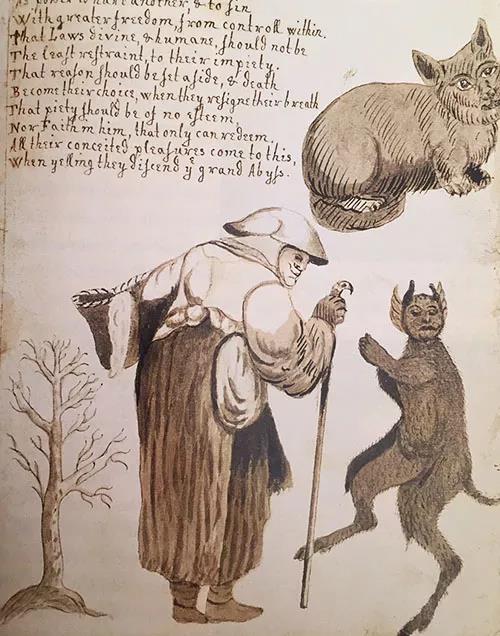 to sin
With greater freedom, from controll within.
That Laws divine, & humane, should not be
The least restraint, to their impiety.
That reason should be set aside, & death
Become their choice, when they resigne their breath
That piety should be of no esteem,
Nor Faith in him, that only can redeem
All their conceited pleasures come to this,
When yelling they discend yᵉ grand Abyss.